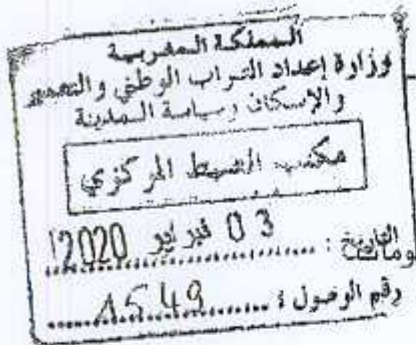 المملكة المغربية
وزارة إعداد التراب الوطني والتعمير
والإسكان وسياسة المدينة
مكتب الضبط المركزي
التاريخ : 03 فبراير 2020
رقم الوصول : 1549